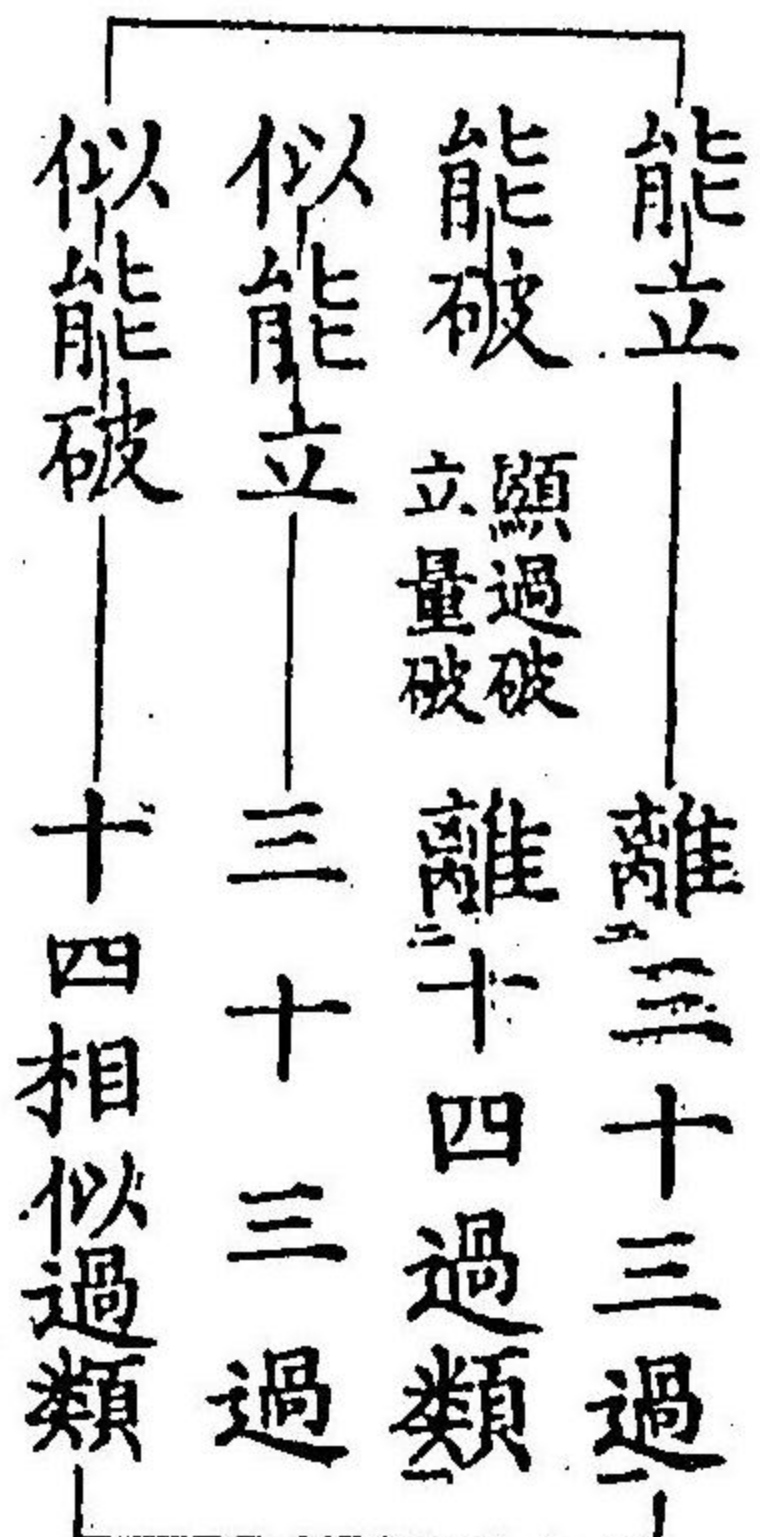 能立
離二三十三過一
能破
顯過破
立量破
離二十四過類一
似能立
三十三過
似能破
十四相似過類